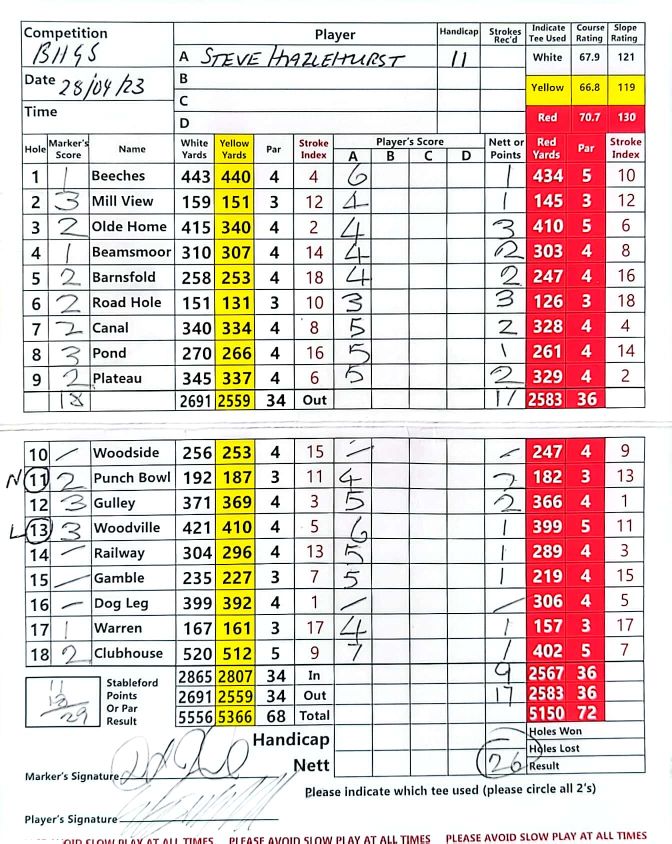 Competition Player Handicap Strokes Rec'd Indicate Tee Used Course Rating Slope Rating
BHGS A STEVE HAZLEHURST 11 White 67.9 121
Date 28/04/23 B Yellow 66.8 119
C
Time D Red 70.7 130
Hole Marker's Score Name White Yards Yellow Yards Par Stroke Index Player's Score A B C D Nett or Points Red Yards Par Stroke Index
1 1 Beeches 443 440 4 4 6 1 434 5 10
2 3 Mill View 159 151 3 12 4 1 145 3 12
3 2 Olde Home 415 340 4 2 4 3 410 5 6
4 1 Beamsmoor 310 307 4 14 4 2 303 4 8
5 2 Barnsfold 258 253 4 18 4 2 247 4 16
6 2 Road Hole 151 131 3 10 3 3 126 3 18
7 2 Canal 340 334 4 8 5 2 328 4 4
8 3 Pond 270 266 4 16 5 1 261 4 14
9 2 Plateau 345 337 4 6 5 2 329 4 2
18 2691 2559 34 Out 17 2583 36
10 — Woodside 256 253 4 15 — — 247 4 9
N 11 2 Punch Bowl 192 187 3 11 4 2 182 3 13
12 3 Gulley 371 369 4 3 5 2 366 4 1
L 13 3 Woodville 421 410 4 5 6 1 399 5 11
14 — Railway 304 296 4 13 5 1 289 4 3
15 — Gamble 235 227 3 7 5 1 219 4 15
16 — Dog Leg 399 392 4 1 — — 306 4 5
17 1 Warren 167 161 3 17 4 1 157 3 17
18 2 Clubhouse 520 512 5 9 7 1 402 5 7
11 Stableford Points Or Par Result 2865 2807 34 In 9 2567 36
18 2691 2559 34 Out 17 2583 36
29 5556 5366 68 Total 5150 72
Handicap Holes Won
Holes Lost
Nett 26 Result
Marker's Signature
Please indicate which tee used (please circle all 2's)
Player's Signature
AVOID SLOW PLAY AT ALL TIMES PLEASE AVOID SLOW PLAY AT ALL TIMES PLEASE AVOID SLOW PLAY AT ALL TIMES